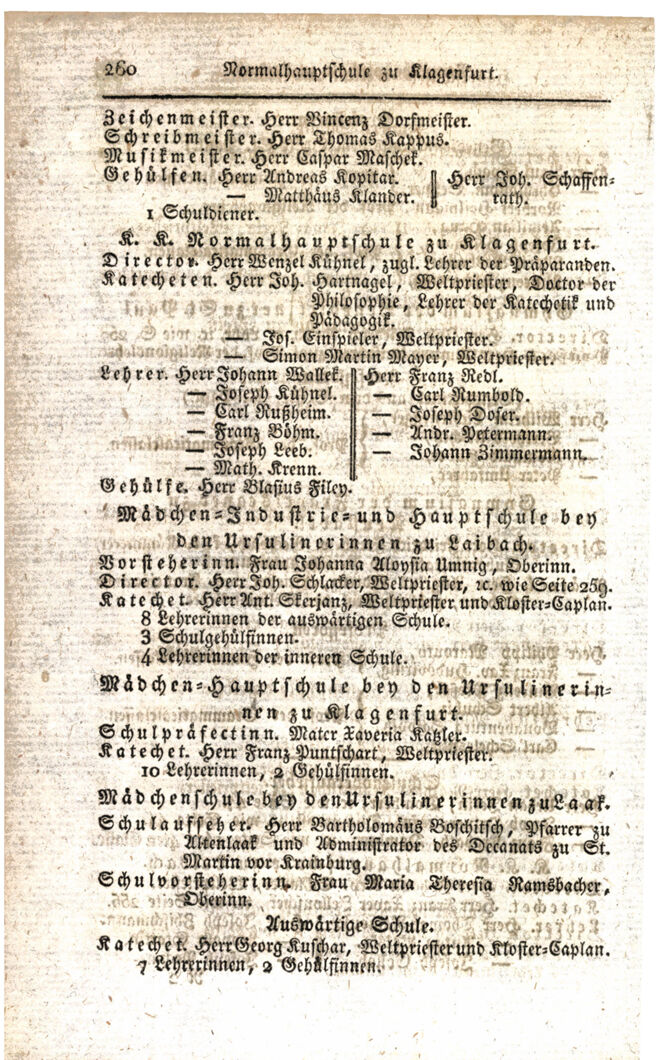 260 Normalhauptschule zu Klagenfurt.
Zeichenmeister. Herr Vincenz Dorfmeister.
Schreibmeister. Herr Thomas Kappus.
Musikmeister. Herr Caspar Maschek.
Gehülfen. Herr Andreas Kopitar. || Herr Joh. Schaffen-
— Matthäus Klander. || rath.
1 Schuldiener.
K. K. Normalhauptschule zu Klagenfurt.
Director. Herr Wenzel Kühnel, zugl. Lehrer der Präparanden.
Katecheten. Herr Joh. Hartnagel, Weltpriester, Doctor der
Philosophie, Lehrer der Katechetik und
Pädagogik.
— Jos. Einspieler, Weltpriester.
— Simon Martin Mayer, Weltpriester.
Lehrer. Herr Johann Wallek. || Herr Franz Redl.
— Joseph Kühnel. || — Carl Rumbold.
— Carl Nußheim. || — Joseph Doser.
— Franz Böhm. || — Andr. Petermann.
— Joseph Leeb. || — Johann Zimmermann.
— Math. Krenn.
Gehülfe. Herr Blasius Filey.
Mädchen-Industrie-und Hauptschule bey
den Ursulinerinnen zu Laibach.
Vorsteherinn. Frau Johanna Aloysia Umnig, Oberinn.
Director. Herr Joh. Schlacker, Weltpriester, ꝛc. wie Seite 259.
Katechet. Herr Ant. Skerjanz, Weltpriester und Kloster-Caplan.
8 Lehrerinnen der auswärtigen Schule.
3 Schulgehülfinnen.
4 Lehrerinnen der inneren Schule.
Mädchen-Hauptschule bey den Ursulinerin-
nen zu Klagenfurt.
Schulpräfectinn. Mater Xaveria Katzler.
Katechet. Herr Franz Puntschart, Weltpriester.
10 Lehrerinnen, 2 Gehülfinnen.
Mädchenschule bey den Ursulinerinnen zu Laak.
Schulaufseher. Herr Bartholomäus Boschitsch, Pfarrer zu
Altenlaak und Administrator des Decanats zu St.
Martin vor Krainburg.
Schulvorsteherinn. Frau Maria Theresia Ramsbacher,
Oberinn.
Auswärtige Schule.
Katechet. Herr Georg Kuschar, Weltpriester und Kloster-Caplan.
7 Lehrerinnen, 2 Gehülfinnen.